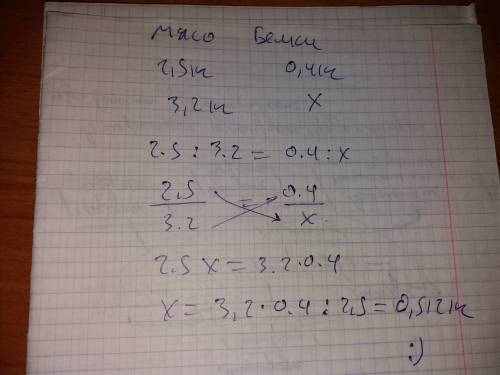 Мясо Белки
2,5кг 0,4кг
3,2кг X
2.5 : 3.2 = 0.4 : X
2,5 / 3.2 = 0.4 / X
2.5 X = 3.2 · 0.4
X = 3,2 · 0.4 : 2,5 = 0,512кг
:)